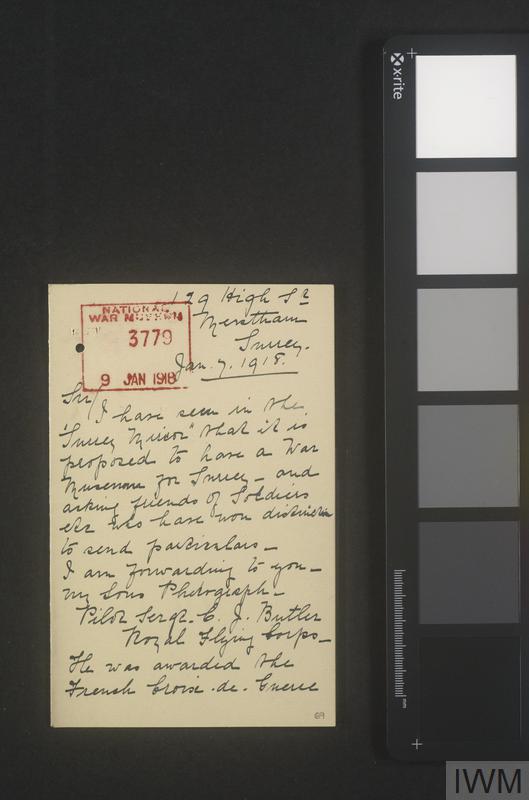 129 High St
Merstham
Surrey.
Jan. 7. 1918.
NATIONAL
WAR MUSEUM
3779
9 JAN 1918
Sir/
I have seen in the
"Surrey Mirror" that it is
proposed to have a War
Museum for Surrey - and
asking friends of Soldiers
etc who have won distinction
to send particulars -
I am forwarding to you -
my Sons Photograph -
Pilot Sergt. C. J. Butler
Royal Flying Corps -
He was awarded the
French Croix-de-Guerre
69
x-rite
mm
IWM